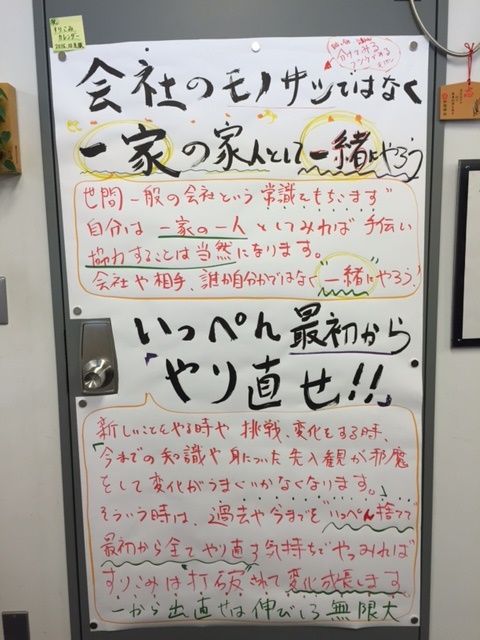 すりこみ
カレンダー
会社のモノサシではなく
一家の家人として一緒にやろう
世間一般の会社という常識をもちこまず
自分は一家の一人としてみれば手伝い
協力することは当然になります。
会社や相手、誰か自分かではなく"一緒"にやろう!
いっぺん最初から
「やり直せ!!」
新しいことをやる時や挑戦、変化をする時、
「今までの知識や身についた先入観が邪魔
をして変化がうまくいかなくなります。」
そういう時は、過去や今までを"いっぺん捨てて"
最初から全てやり直す気持ちでやってみれば
すりこみは"打破"されて変化成長します
一から出直せば伸びしろ無限大